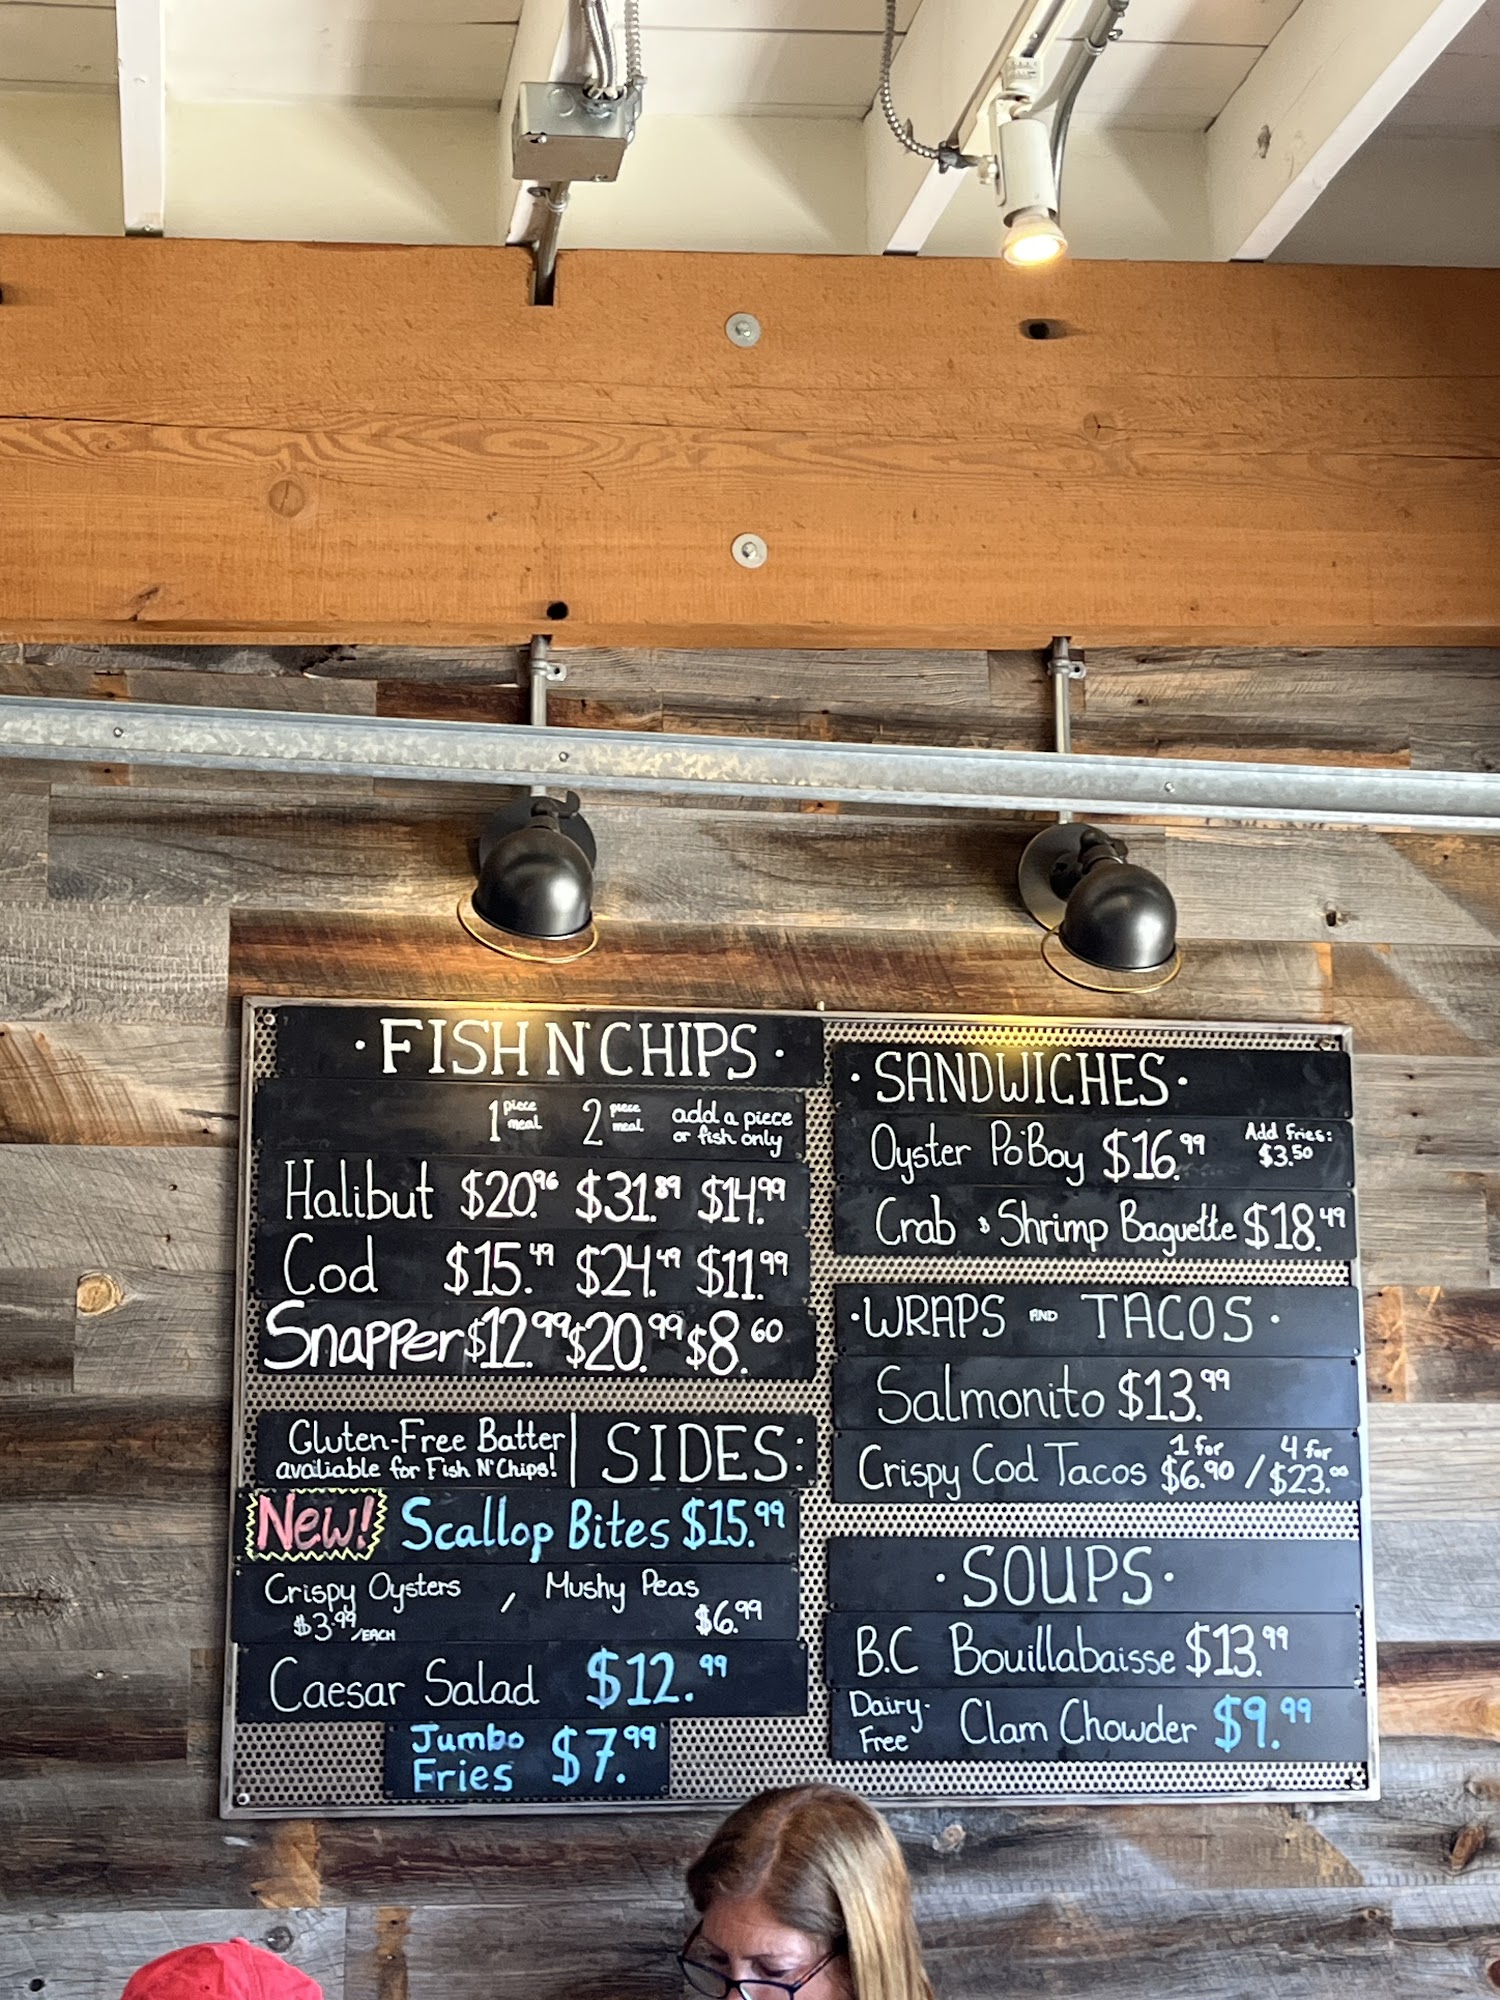 · FISH N' CHIPS ·
1 piece meal 2 piece meal add a piece or fish only
Halibut $20.96 $31.89 $14.99
Cod $15.49 $24.49 $11.99
Snapper $12.99 $20.99 $8.60
Gluten-Free Batter
available for Fish N' Chips!
SIDES:
New! Scallop Bites $15.99
Crispy Oysters / Mushy Peas
$3.99/EACH $6.99
Caesar Salad $12.99
Jumbo
Fries $7.99
· SANDWICHES ·
Oyster Po'Boy $16.99 Add Fries: $3.50
Crab & Shrimp Baguette $18.49
· WRAPS AND TACOS ·
Salmonito $13.99
Crispy Cod Tacos 1 for $6.90 / 4 for $23.00
· SOUPS ·
B.C Bouillabaisse $13.99
Dairy-Free Clam Chowder $9.99